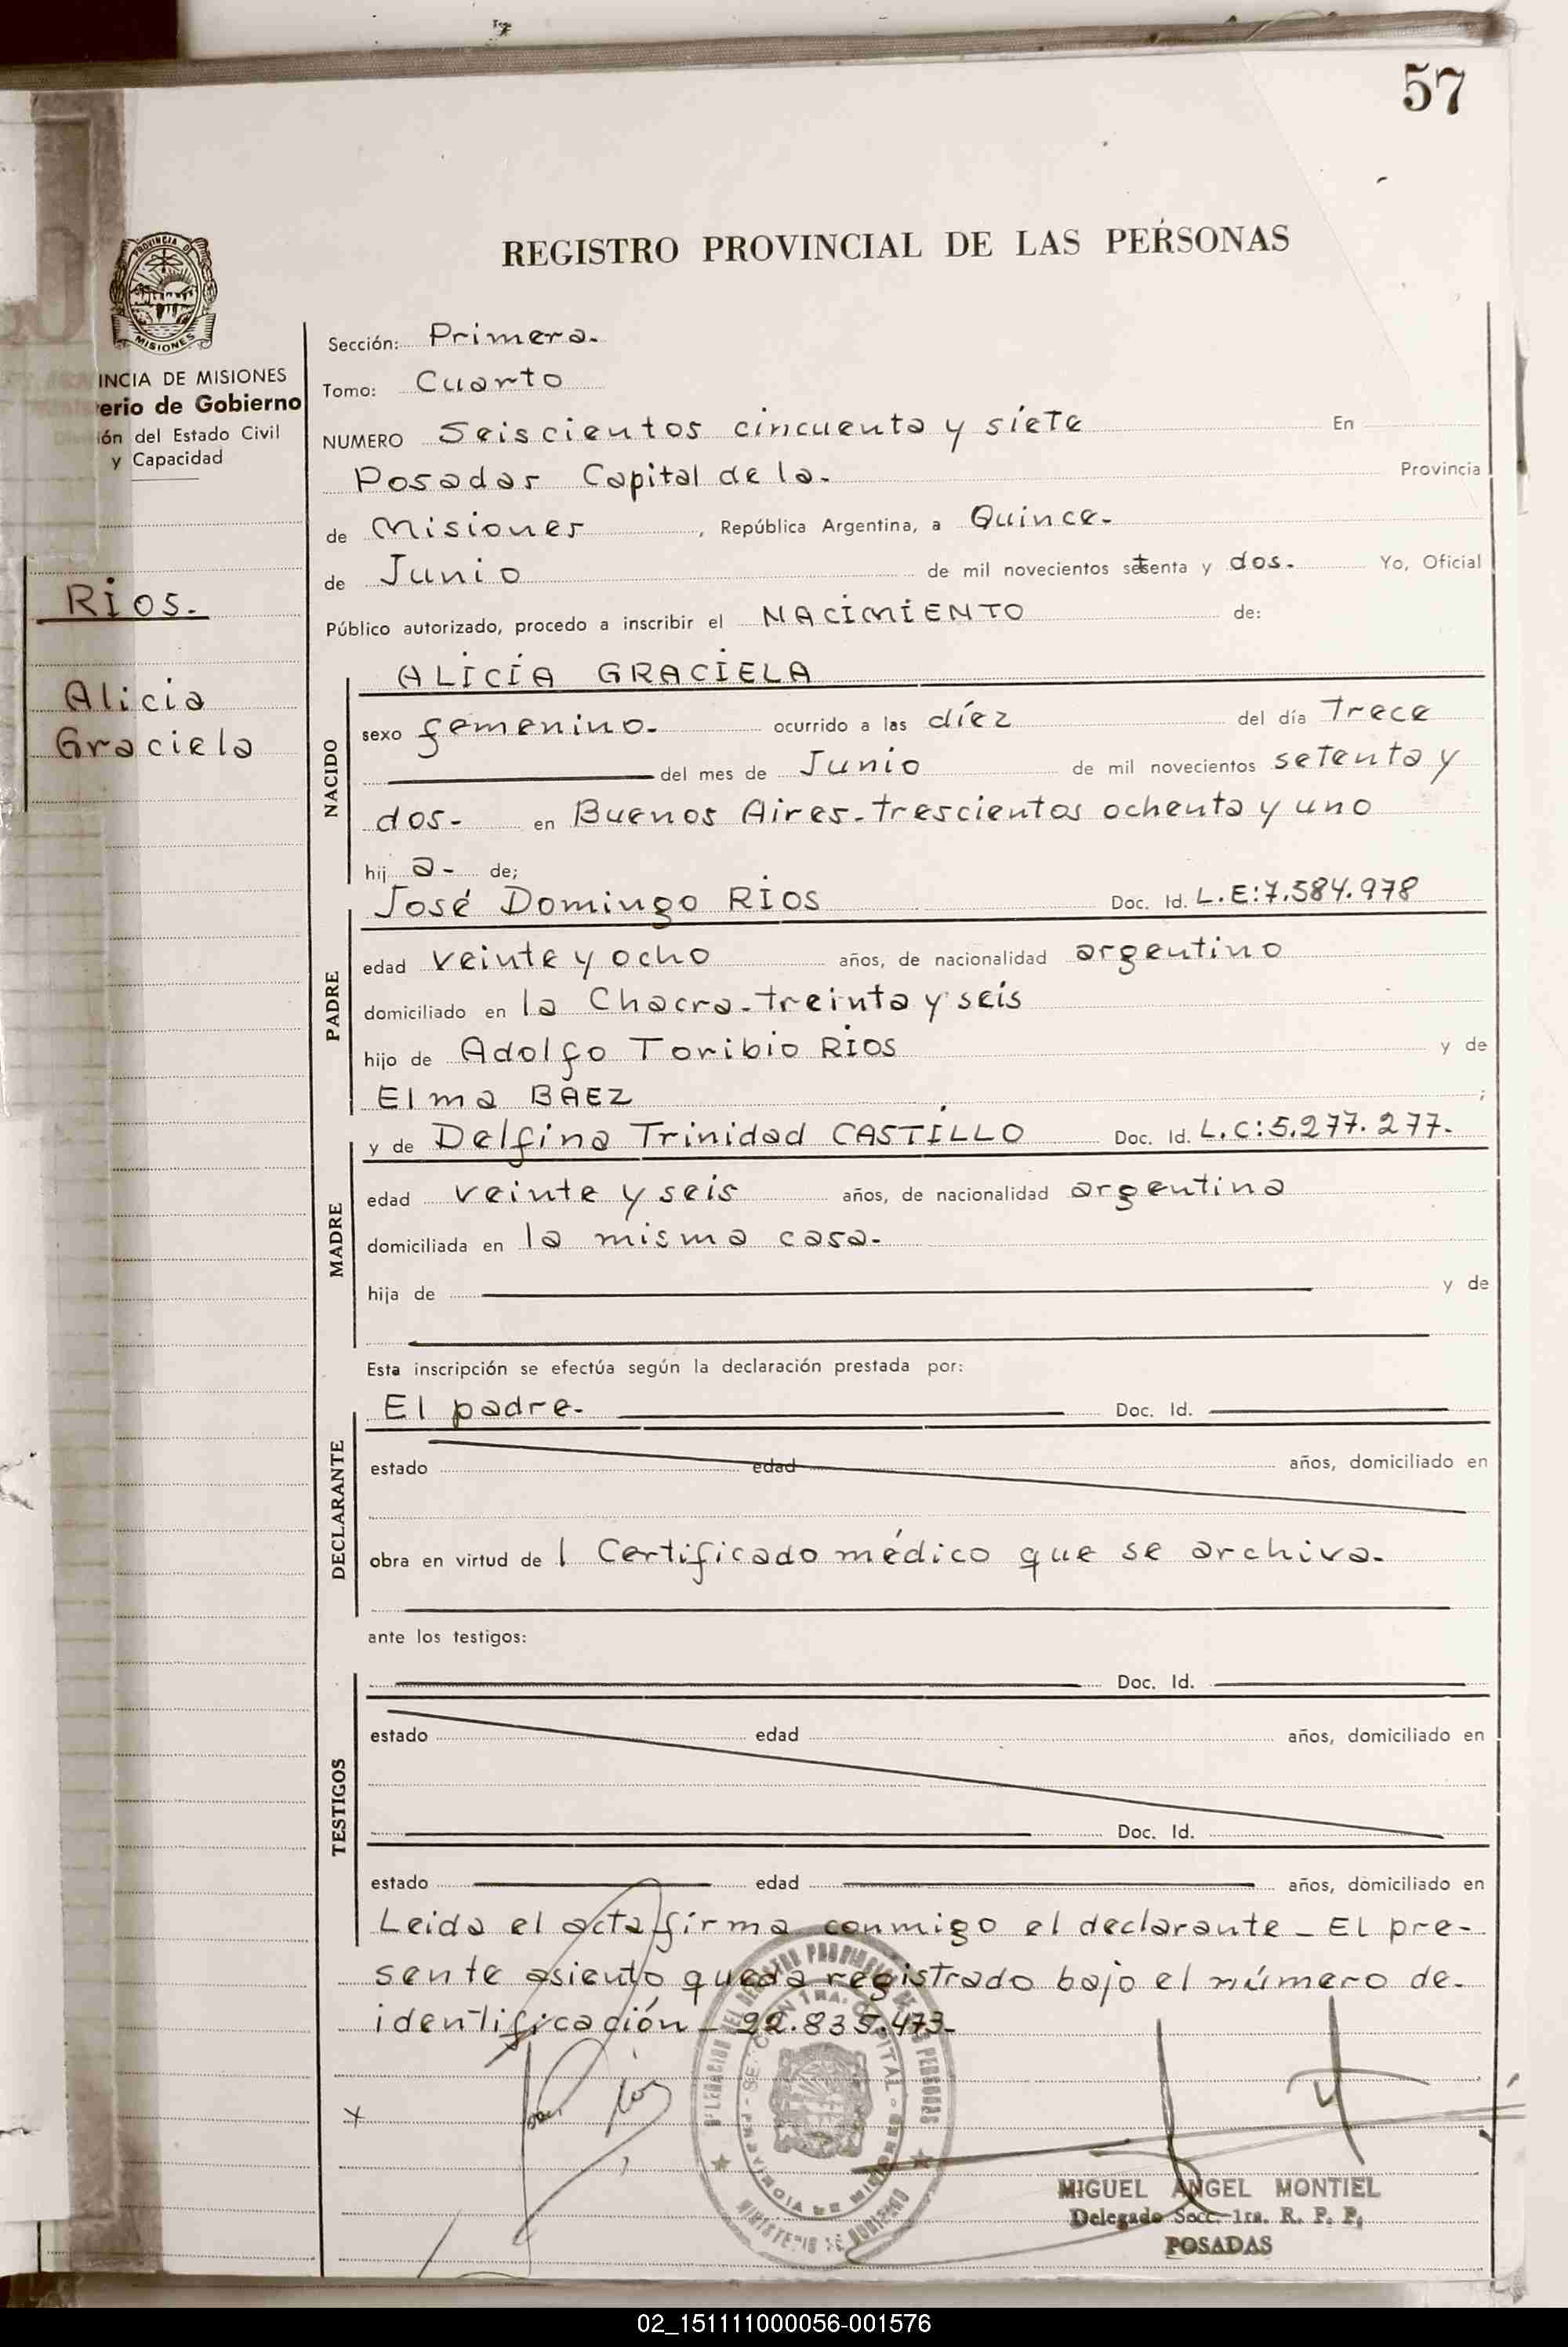 57
REGISTRO PROVINCIAL DE LAS PERSONAS
PROVINCIA DE
MISIONES
INCIA DE MISIONES
erio de Gobierno
ión del Estado Civil
y Capacidad
Rios.
Alicia
Graciela
Sección: Primera.
Tomo: Cuarto
NUMERO Seiscientos cincuenta y siete En
Posadas Capital de la. Provincia
de Misiones, República Argentina, a Quince.
de Junio de mil novecientos setenta y dos. Yo, Oficial
Público autorizado, procedo a inscribir el NACIMIENTO de:
NACIDO
ALICIA GRACIELA
sexo femenino. ocurrido a las diez del día Trece
del mes de Junio de mil novecientos setenta y
dos- en Buenos Aires-trescientos ochenta y uno
hij a- de;
PADRE
José Domingo RIOS Doc. Id. L.E:7.584.978
edad veinte y ocho años, de nacionalidad argentino
domiciliado en la Chacra-treinta y seis
hijo de Adolfo Toribio RIOS y de
Elma BAEZ ;
MADRE
y de Delfina Trinidad CASTILLO Doc. Id. L.C:5.277.277.
edad veinte y seis años, de nacionalidad argentina
domiciliada en la misma casa.
hija de y de
Esta inscripción se efectúa según la declaración prestada por:
DECLARANTE
El padre. Doc. Id.
estado edad años, domiciliado en
obra en virtud de l Certificado médico que se archiva.
ante los testigos:
TESTIGOS
Doc. Id.
estado edad años, domiciliado en
Doc. Id.
estado edad años, domiciliado en
Leida el acta firma conmigo el declarante - El pre-
sente asiento queda registrado bajo el número de-
identificación - 22.835.473-
MIGUEL ANGEL MONTIEL
Delegado Secc. 1ra. R. P. P.
POSADAS
02_151111000056-001576